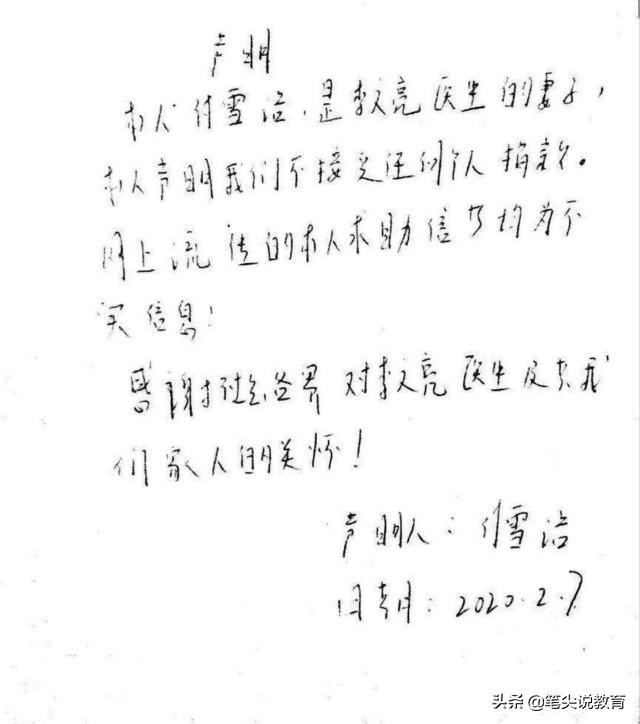 声明
本人付雪洁,是李文亮医生的妻子,
本人声明我们不接受任何个人捐款。
网上流传的本人求助信息均为不
实信息!
感谢社会各界对李文亮医生及其我
们家人的关怀!
声明人:付雪洁
日期:2020.2.7
头条@笔尖说教育